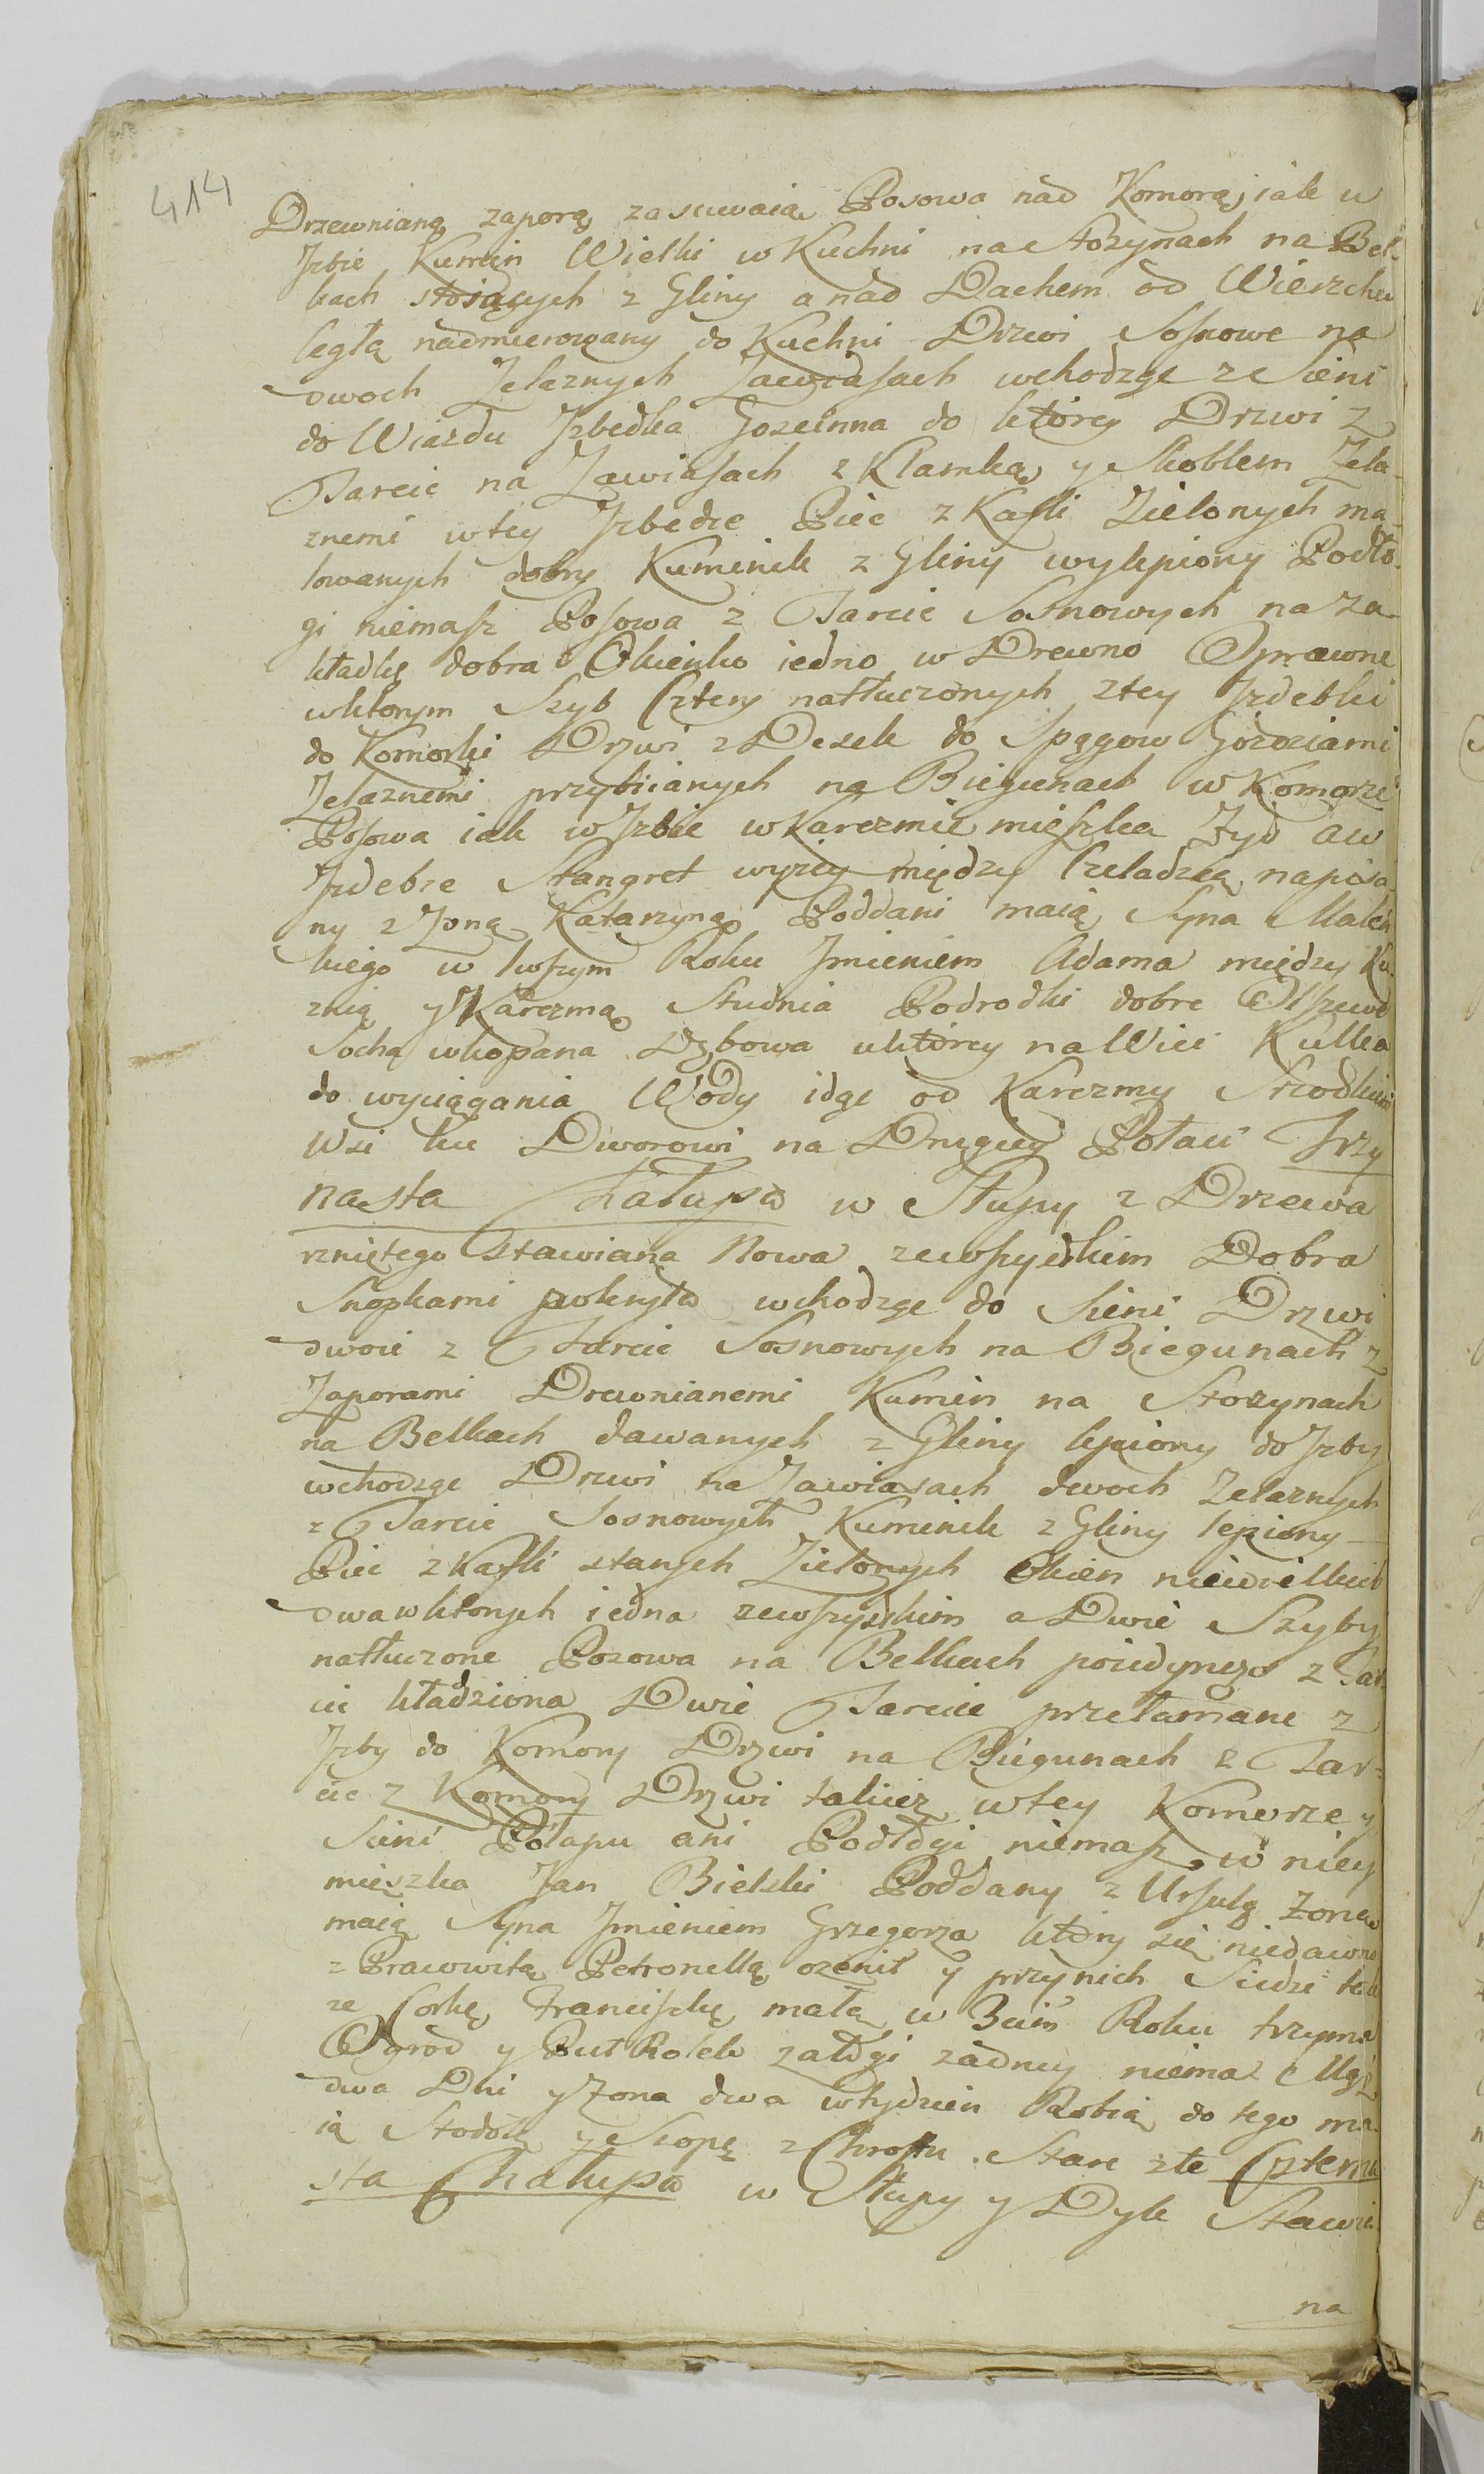 414
Drzewnianą zaporą zasuwaią Posowa nad Komorą iak w
Jzbie Kumin Wielki w Kuchni na Stozynach na Bel-
kach stoiących z Gliny a nad Dachem od Wierzchu
ległą nadmurowany do Kuchni Drzwi Sosnowe na
dwoch Zelaznych Zawiasach wchodząc z Sieni
do Wiazdu Jzbedka Goscinna do ktorey Drzwi z
Tarcic na Zawiasach z Klamką y Skoblem Zela-
znemi wtey Jzbedce Piec z Kafli Zielonych ma-
lowanych dobry Kuminek z Gliny wylepiony Podło-
gi niemasz Posowa z Tarcic Sosnowych na za-
kładkę dobra Okienko iedno w Drewno Oprawne
wktorym Szyb Cztery natłuczonych ztey Jzdebki
do Komorki Drzwi z Desek do Spągow Gozdziami
Zelaznemi przybiianych na Biegunach w Komorze
Posowa iak w Jzbie w Karczmie mieszka Zyd a w
Jzdebce Stangret wyzey między Czeladzią napisa-
ny z Zoną Katarzyną Poddani maią Syna Maleń
kiego w 1wszym Roku Jmieniem Adama między Ku-
znią y Karczmą Studnia Podrodki dobre
Socha wkopana Dębowa uktorey na Wici Kulka
do wyciągania Wody idąc od Karczmy Srzodkiem
Wsi ku Dworowi na Drugiey Połaci Trzy
nasta Chałupa w Słupy z Drzewa
rzniętego Stawiana Nowa zewszystkim Dobra
Snopkami pokryta wchodząc do Sieni Drzwi
dwoie z Tarcic Sosnowych na Biegunach z
Zaporami Drewnianemi Kumin na Stozynach
na Belkach dawanych z Gliny lepiony do Jzby
wchodząc Drzwi na Zawiasach dwoch Zelaznych
z Tarcic Sosnowych Kuminek z Gliny lepiony
Piec z Kafli starych Zielonych Okien niewielkich
dwa wktorych iedna zewszystkim a Dwie Szyby
natłuczone Pozowa na Belkach poiedynczo z Tar
cic kładziona Dwie Tarcice przełamane z
Jzby do Komory Drzwi na Biegunach z Tar-
cic z Komory Drzwi takież wtey Komorze y
Sieni Połapu ani Podłogi niemasz w niey
mieszka Jan Bielski Poddany z Urszulą Zoną
maią Syna Jmieniem Grzegorza ktory się niedawno
z Pracowitą Petronellą ozenił y przynich Siedzi
ze Corkę Franciszkę małą w 3cim Roku trzyma
Ogrod y Puł Rolek załogi zadney niema Mąż
dwa Dni y Zona dwa wtydzien Robią do tego ma-
ią Stodołę y Szopę z Chrostu Stare złe Czterna
sta Chałupa w Słupy y Dyle Stawia
na